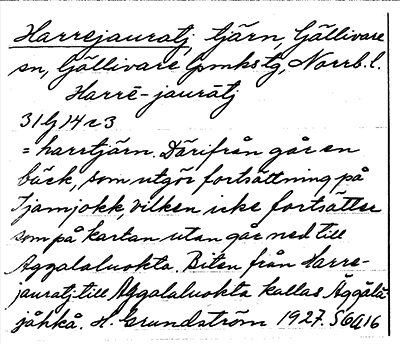 Harrejauratj, tjärn, Gällivare
sn, Gällivare lpmkstg, Norrb. l.
Harrē-jaurātj
31 G 14 c 3
= harrtjärn. Därifrån går en
bäck, som utgör fortsättning på
Tjamjokk, vilken icke fortsätter
som på kartan utan går ned till
Aggalaluokta. Biten från Harre-
jauratj till Aggalaluokta kallas Äggålå-
jåhkå. H. Grundström 1927. S 6916